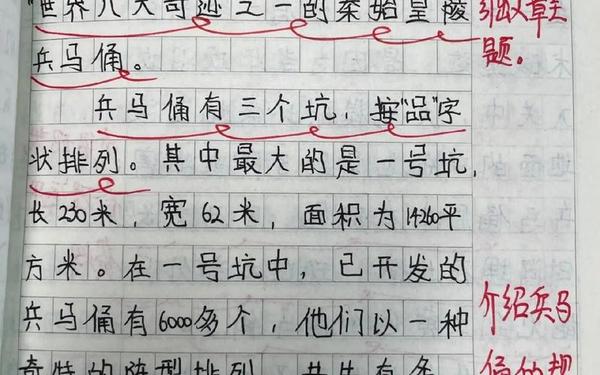 世界八大奇迹之一的秦始皇陵
兵马俑。
兵马俑有三个坑，按"品"字
状排列。其中最大的是一号坑，
长230米，宽62米，面积为14260平
方米。在一号坑中，已开发的
兵马俑有6000多个，他们以一种
奇特的阵型排列
引出文章主
题。
介绍兵马
俑的规